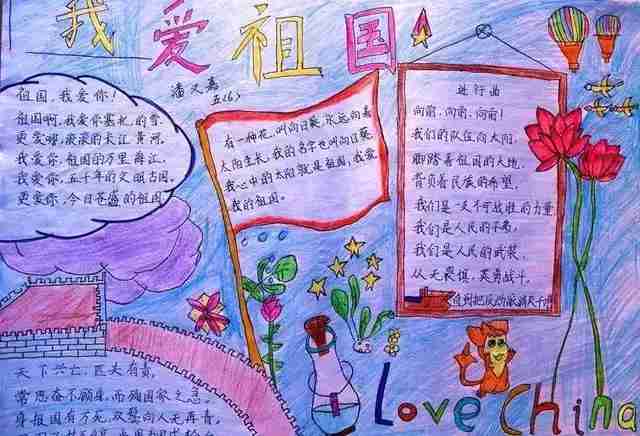 我爱祖国
潘文嘉
五(6)
祖国,我爱你!
祖国啊,我爱你塞北的雪,
更爱哪滚滚的长江黄河。
我爱你,祖国的万里海江,
我爱你,五千年的文明古国。
更爱你,今日苍盛的祖国
有一种花,叫向日葵,永远向着
太阳生长,我的名字也叫向日葵
我心中的太阳就是祖国,我爱
我的祖国。
进行曲
向前,向前,向前!
我们的队伍向太阳,
脚踏着祖国的大地,
背负着民族的希望,
我们是一支不可战胜的力量
我们是人民的子弟,
我们是人民的武装,
从无畏惧,英勇战斗,
直到把反动派消灭干净
天下兴亡,匹夫有责,
常思奋不顾身,而殉国家之急。
身报国有万死,双鬓向人无再青。
Love China